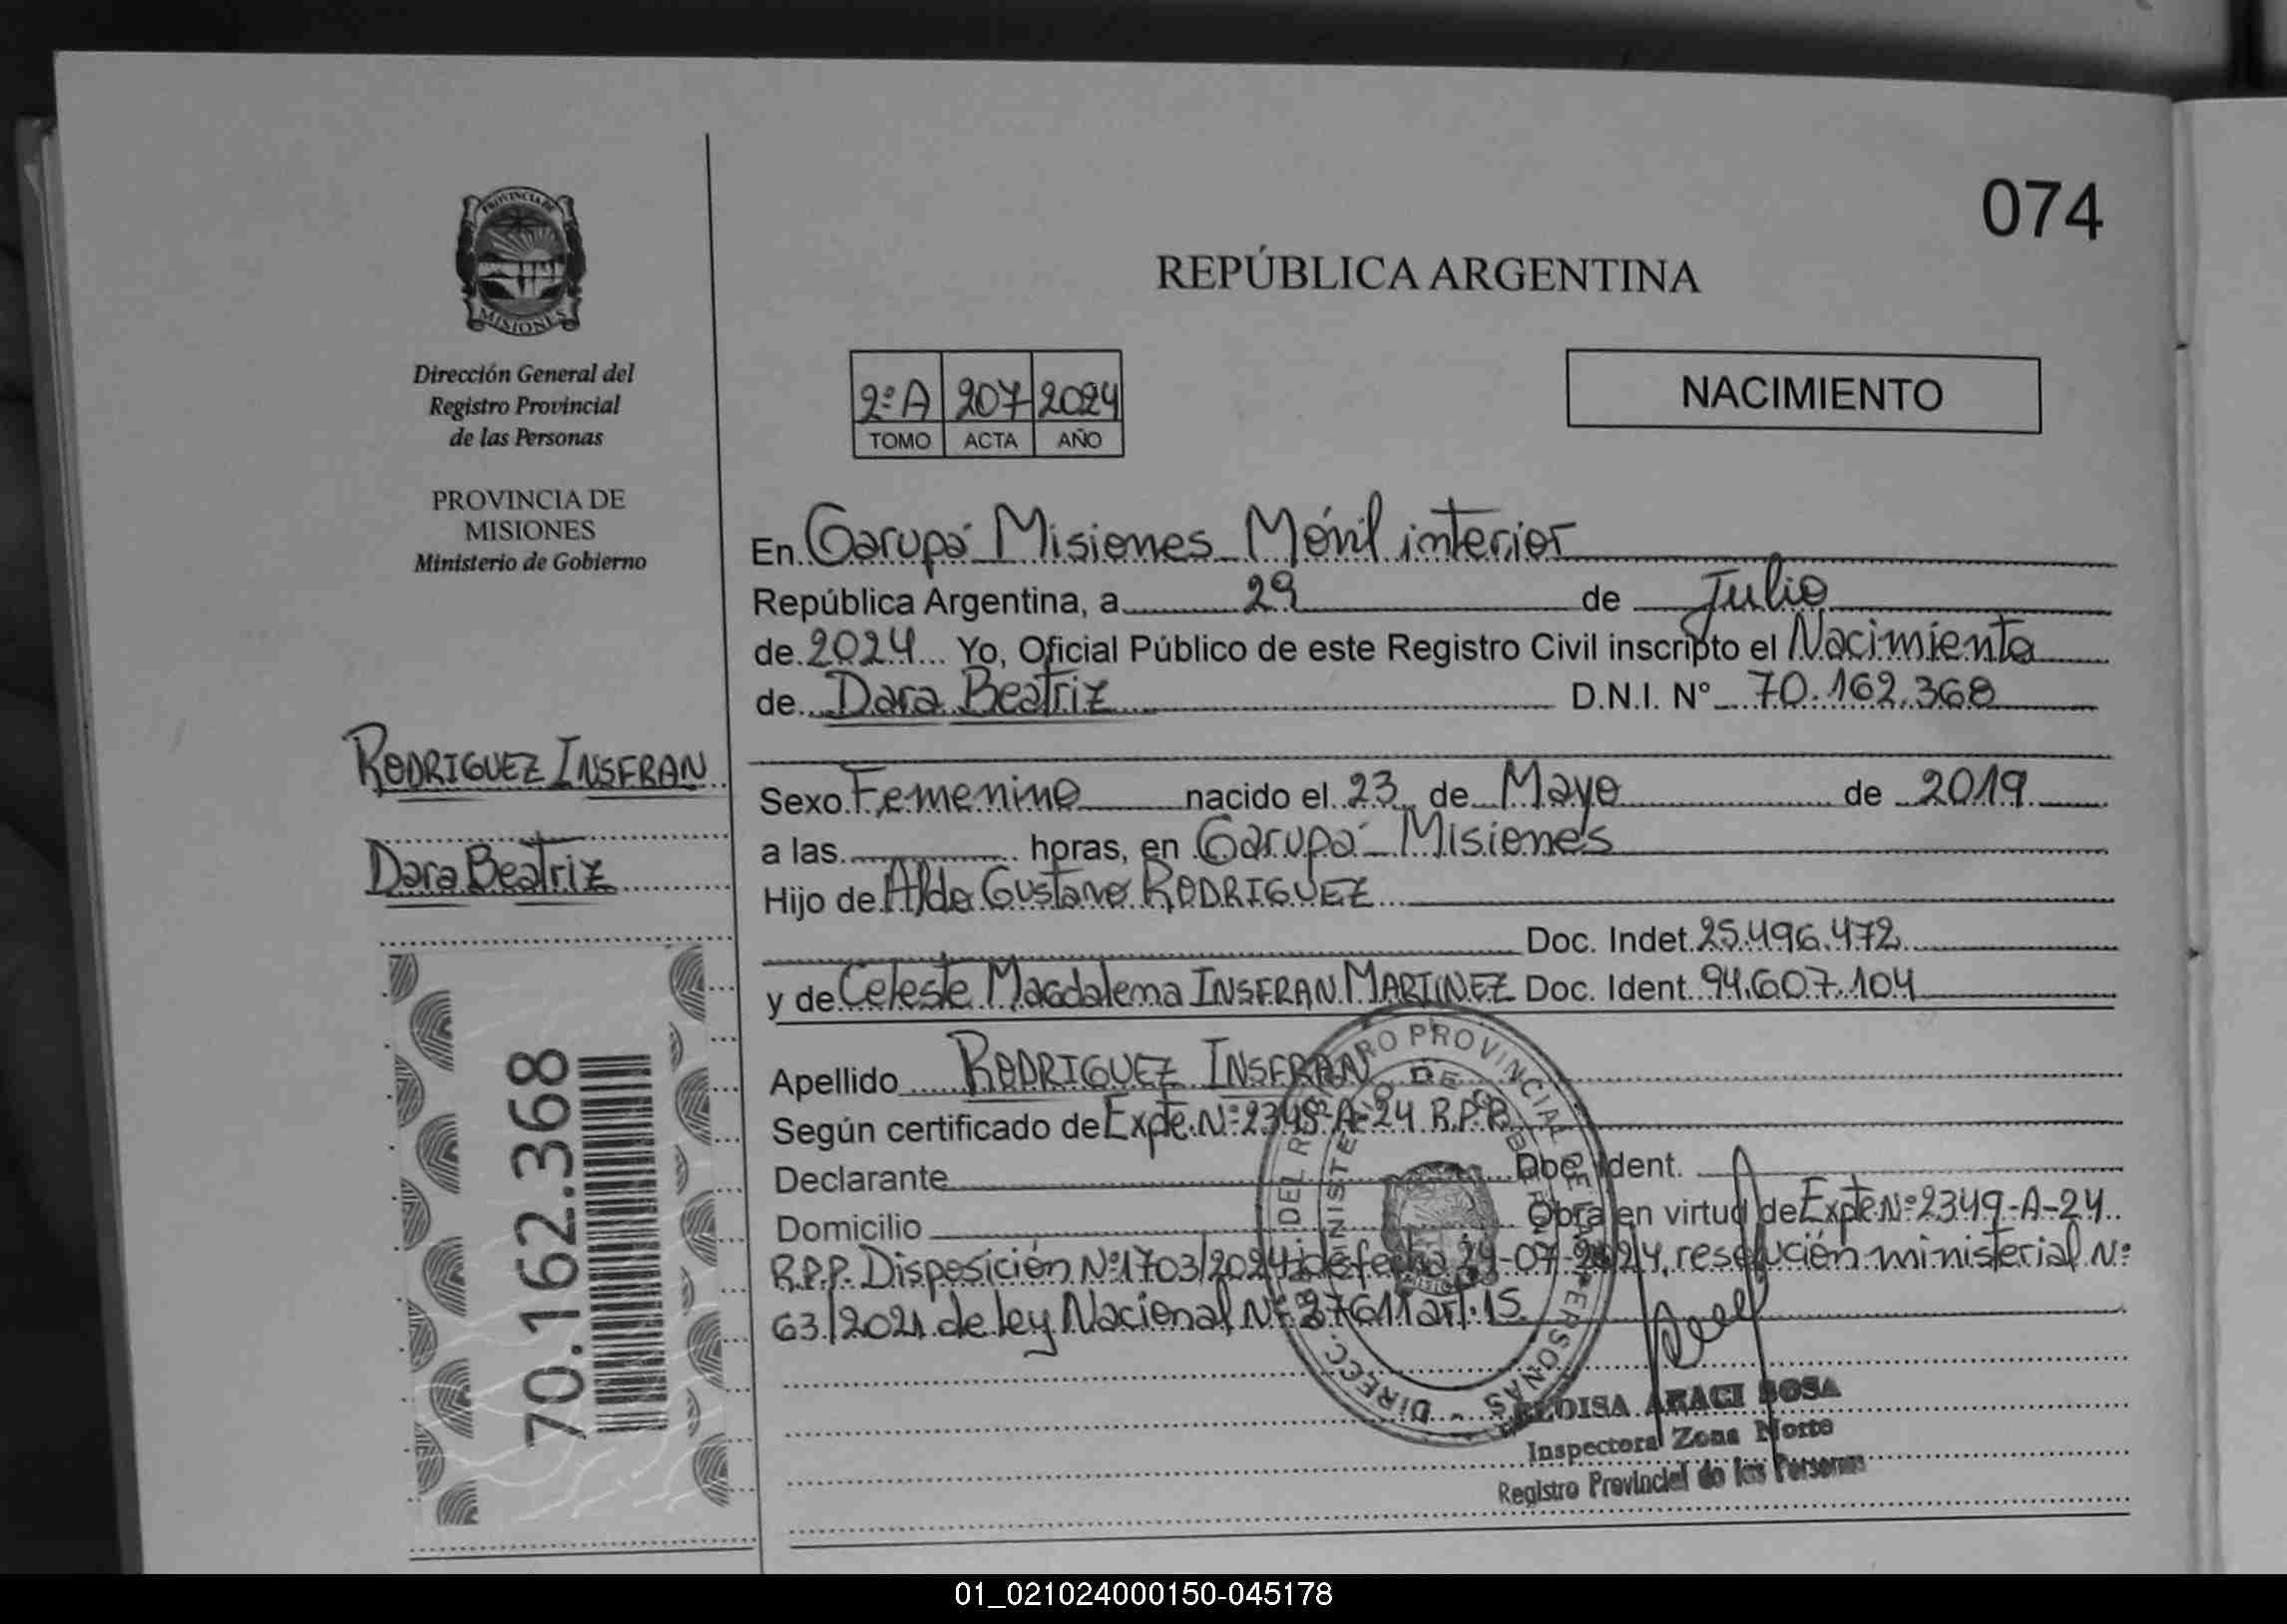 074
REPÚBLICA ARGENTINA
PROVINCIA DE
MISIONES
Dirección General del
Registro Provincial
de las Personas
PROVINCIA DE
MISIONES
Ministerio de Gobierno
2º A 207 2024
TOMO ACTA AÑO
NACIMIENTO
En Garupá Misiones Móvil interior
República Argentina, a 29 de Julio
de 2024 Yo, Oficial Público de este Registro Civil inscripto el Nacimiento
de Dara Beatriz D.N.I. Nº 70.162.368
RODRIGUEZ INSFRAN
Dara Beatriz
Sexo Femenino nacido el 23 de Mayo de 2019
a las horas, en Garupá Misiones
Hijo de Aldo Gustavo RODRIGUEZ
Doc. Indet. 25.496.472
y de Celeste Magdalena INSFRAN MARTINEZ Doc. Ident. 94.607.104
Apellido RODRIGUEZ INSFRAN
Según certificado de Expte. Nº A-24 R.P.P.
Declarante Doc. Ident.
Domicilio Obra en virtud de Expte Nº 2349-A-24
R.P.P. Disposición Nº 1703/2024 de fecha -07-2024, resolución ministerial Nº
63/2021 de ley Nacional Nº 27611 art. 15.
70.162.368
DIRECC. DEL REGISTRO PROVINCIAL DE LAS PERSONAS
MINISTERIO DE GOBIERNO
MISIONES
ELOISA ARACI SOSA
Inspectora Zona Norte
Registro Provincial de las Personas
01_021024000150-045178